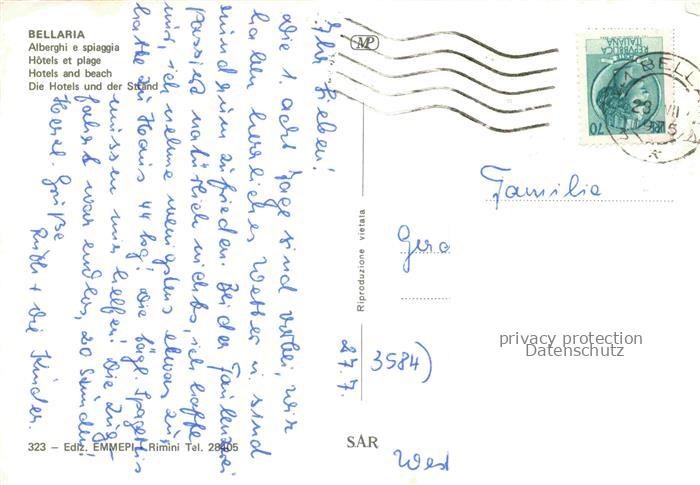 BELLARIA
Alberghi e spiaggia
Hôtels et plage
Hotels and beach
Die Hotels und der Strand
Ihr Lieben!
Die 1. acht Tage sind vorbei, wir
haben herrliches Wetter u. sind
rundrum zufrieden. Bei der Faulenzerei
passiert natürlich nichts, ich hoffe
nur, ich nehme wenigstens etwas zu,
hatte zu Haus 44 kg! Die tägl. Spagettis
müssen mir helfen! Die Zug-
fahrt war endlos, 20 Stunden!
Herzl. Grüße
Ruth + die Kinder.
27.7.
323 – Ediz. EMMEPI - Rimini Tel. 28405
MP
Riproduzione vietata
REPUBBLICA
ITALIANA
70
BELLA
23
VII
Familie
Gera
privacy protection
Datenschutz
3584)
SAR
West